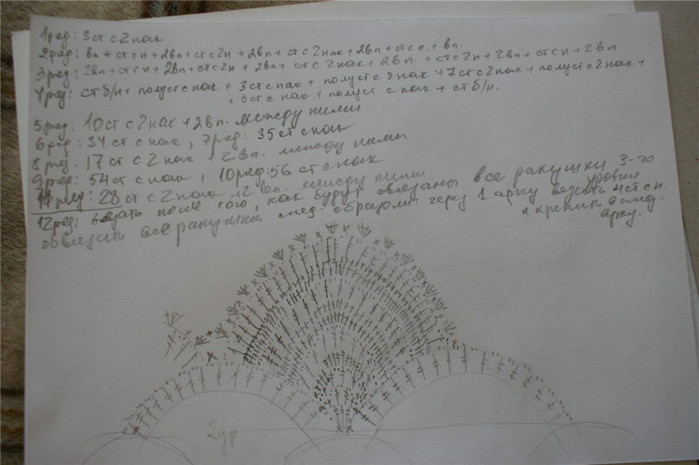 1ряд: 3 ст с 2 нак
2ряд: вп + ст с н + 2вп + ст с 2н + 2вп + ст с 2нак + 2вп + ст с н + вп.
3ряд: 2вп + ст с н + 2вп + ст с 2н + 2вп + ст с 2нак + 2вп + ст с 2н + 2вп + ст с н + 2вп
4ряд: ст б/н + полуст с нак + 3 ст с нак + полуст с 2нак + 7 ст с 2нак + полуст с 2нак +
+ 3 ст с нак + полуст с нак + ст б/н.
5ряд: 10 ст с 2нак + 2вп. между ними
6ряд: 34 ст с нак, 7ряд: 35 ст с нак
8ряд: 17 ст с 2нак + 2вп. между ними
9ряд: 54 ст с нак, 10ряд: 56 ст с нак
11ряд: 28 ст с 2нак + 2вп. между ними
12ряд: вязать после того, как будут связаны все ракушки 3-го уровня
обвязать все ракушки след. образом: через 1 арку вязать 4 ст с н
и крепить в след. арку.
2ур